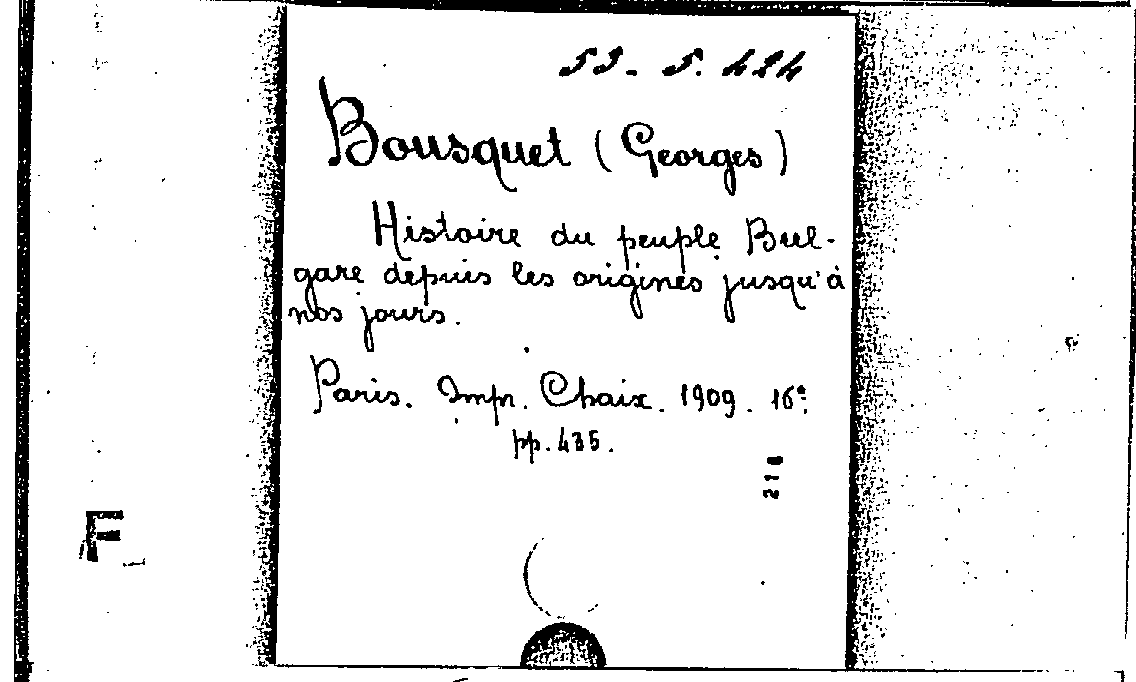 53. 5. 424
Bousquet (Georges)
Histoire du peuple Bul-
gare depuis les origines jusqu'à
nos jours.
Paris. Impr. Chaix. 1909. 16°.
pp. 435.
218
F